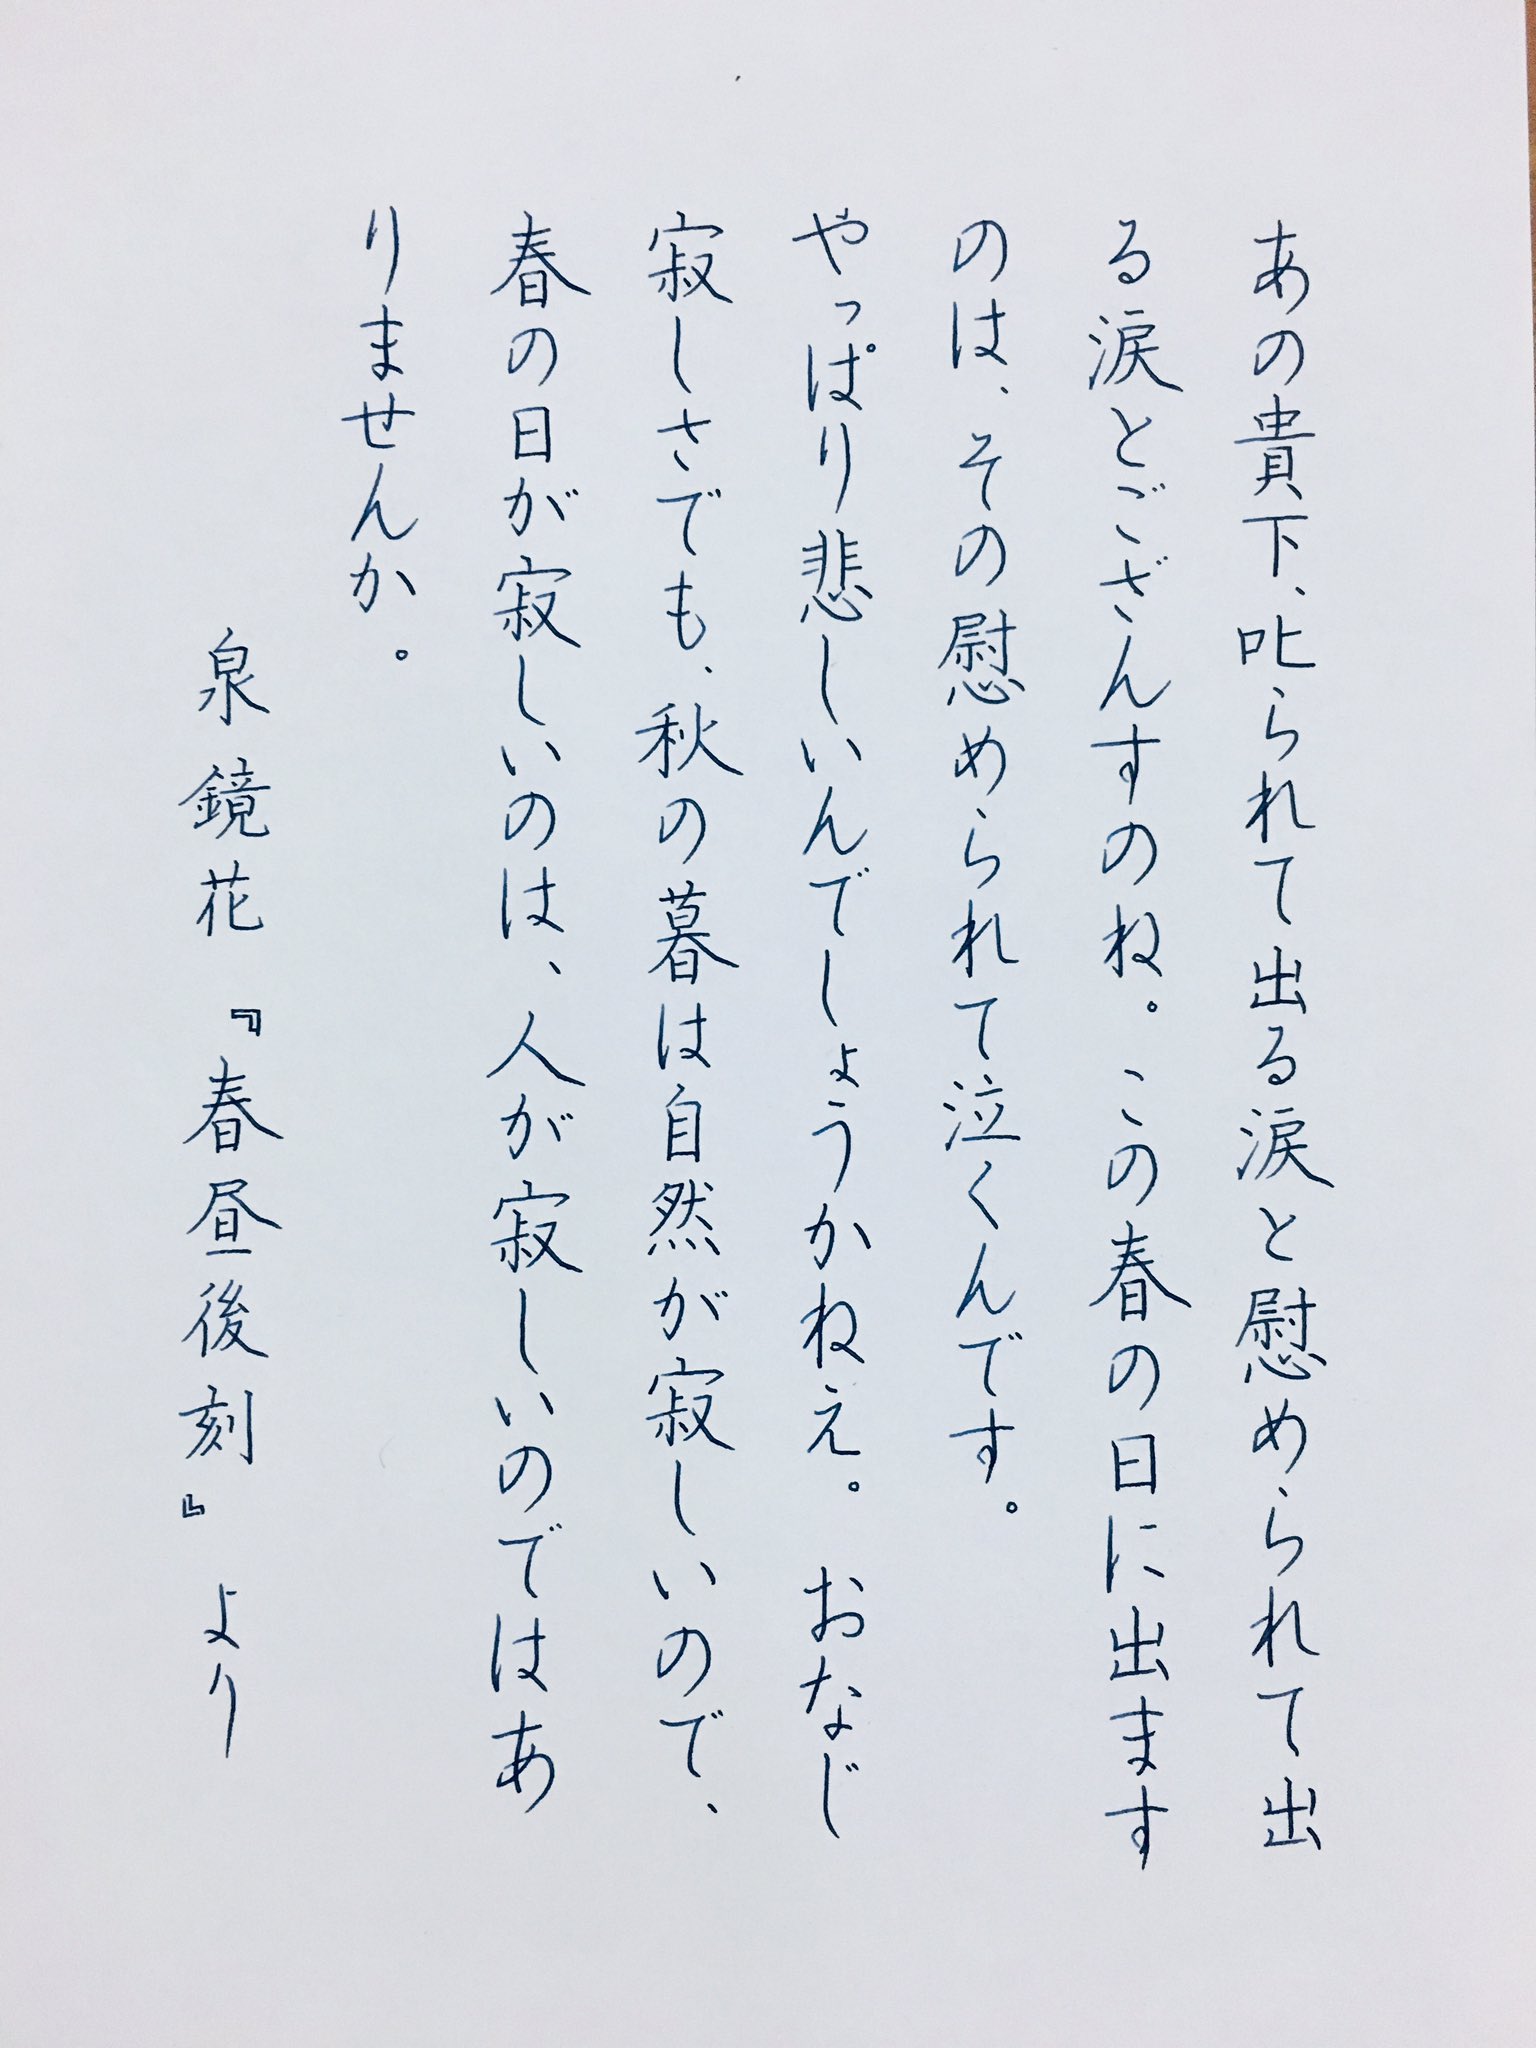 あの貴下、叱られて出る涙と慰められて出
る涙とござんすのね。この春の日に出ます
のは、その慰められて泣くんです。
やっぱり悲しいんでしょうかねえ。おなじ
寂しさでも、秋の暮は自然が寂しいので、
春の日が寂しいのは、人が寂しいのではあ
りませんか。
泉鏡花『春昼後刻』より